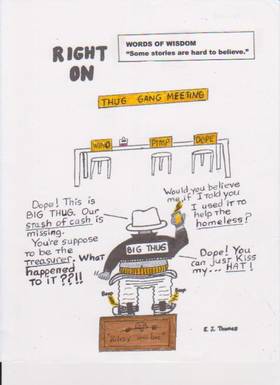 RIGHT
ON
WORDS OF WISDOM
"Some stories are hard to believe."
THUG GANG MEETING
WINO
PIMP
DOPE
Dope! This is
BIG THUG. Our
stash of cash is
missing.
You're suppose
to be the
treasurer. What
happened
to it??!!
Would you believe
me if I told you
I used it to
help the
homeless?
BIG THUG
Dope! You
can just kiss
my... HAT!
Beep
E.J. Thomas